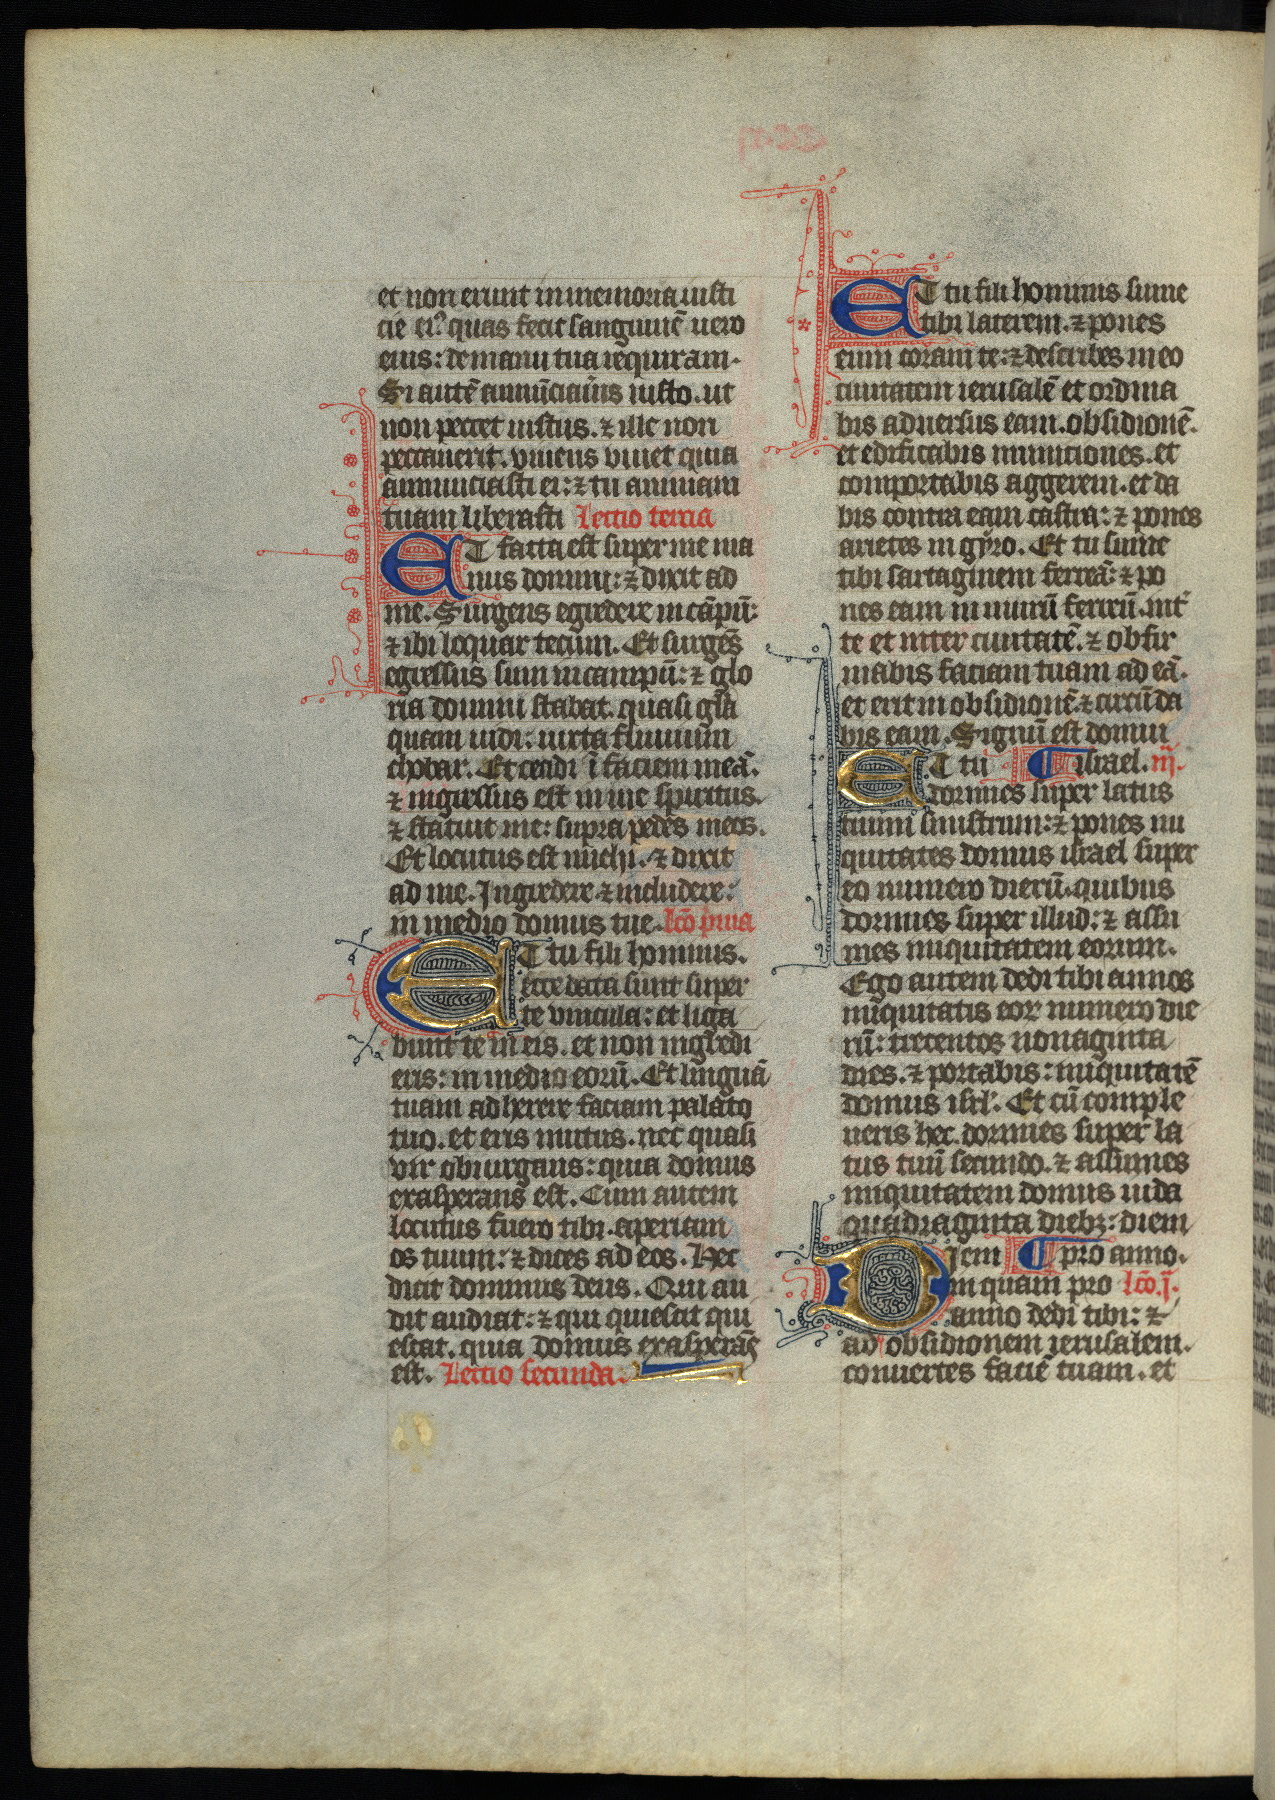 et non erunt in memoria iusti
cie ei⁹ quas fecit sanguinē uero
eius: de manu tua requiram.
Si autē annūciaūis iusto. ut
non peccet iustus. ⁊ ille non
peccauerit. viuens viuet quia
annunciasti ei: ⁊ tu animam
tuam liberasti Lectio tercia
ET facta est super me ma
nus domini: ⁊ dixit ad
me. Surgens egredere in cāpū:
⁊ ibi loquar tecum. Et surgēs
egressus sum in campū: ⁊ glo
ria domini stabat. quasi gl̄a
quam uidi: iuxta fluuium
chobar. Et cecidi ī faciem meā.
⁊ ingressus est in me spiritus.
⁊ statuit me: supra pedes meos.
Et locutus est michi. ⁊ dixit
ad me. Ingredere ⁊ includere:
in medio domus tue. Lcō p̄ma
ET tu fili hominis.
ecce data sunt super
te vincula: et liga
bunt te in eis. et non ingredi
eris: in medio eorū. Et linguā
tuam adherere faciam palato
tuo. et eris mutus. nec quasi
vir obiurgans: quia domus
exasperans est. Cum autem
locutus fuero tibi. aperiam
os tuum: ⁊ dices ad eos. Hec
dicit dominus deus. Qui au
dit audiat: ⁊ qui quiescit qui
escat. quia domus exasperās
est. Lectio secunda.
ET tu fili hominis sume
tibi laterem. ⁊ pones
eum coram te: ⁊ describes in eo
ciuitatem ierusalē et ordina
bis aduersus eam. obsidionē.
et edificabis munitiones. et
comportabis aggerem. et da
bis contra eam castra: ⁊ pones
arietes in gyro. Et tu sume
tibi sartaginem ferreā: ⁊ po
nes eam in murū ferreū. int̄
te et inter ciuitatē. ⁊ obfir
mabis faciam tuam ad eā.
et erit in obsidionē. ⁊ circūda
bis eam. Signū est domui
ET tu israel. iij.
dormies super latus
tuum sinistrum: ⁊ pones ini
quitates domus israel super
eo numero dierū. quibus
dormies super illud: ⁊ assu
mes iniquitatem eorum.
Ego autem dedi tibi annos
iniquitatis eoꝝ numero die
rū: trecentos nonaginta
dies. ⁊ portabis: iniquitatē
domus isrl̄. Et cū comple
ueris hec. dormies super la
tus tuū secundo. ⁊ assumes
iniquitatem domus iuda
quadraginta diebꝫ: diem
Diem pro anno.
inquam pro Lcō. j.
anno dedi tibi: ⁊
ad obsidionem ierusalem.
conuertes faciē tuam. et